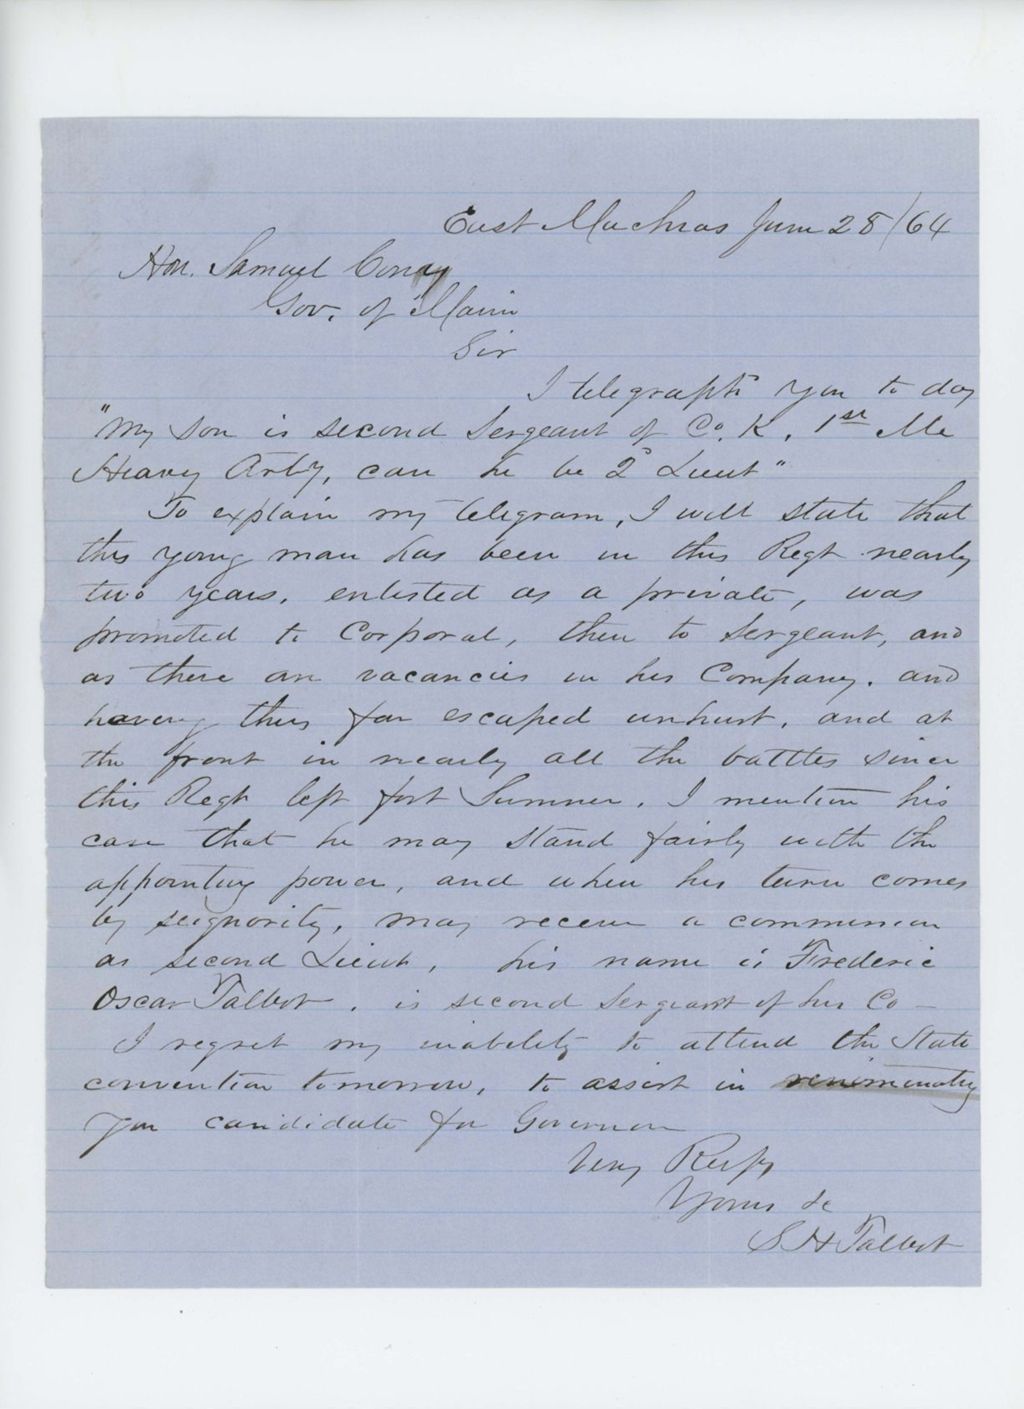 East Machias June 28/64
Hon. Samuel Cony
Gov. of Maine
Sir
I telegraph'd you to day
"My son is second Sergeant of Co. K. 1st Me
Heavy Arty, can he be 2d Lieut"
To explain my telegram, I will state that
this young man has been in this Regt nearly
two years, enlisted as a private, was
promoted to Corporal, then to Sergeant, and
as there are vacancies in his Company. and
having thus far escaped unhurt, and at
the front in nearly all the battles since
this Regt left fort Sumner. I mention his
case that he may stand fairly with the
appointing power, and when his turn comes
by seignority, may receive a commission
as second Lieut, his name is Frederic
Oscar Talbot. is second Sergeant of his Co—
I regret my inability to attend the State
convention tomorrow, to assist in renominating
you candidate for Governor
Very Respy
Yours &c
S H Talbot